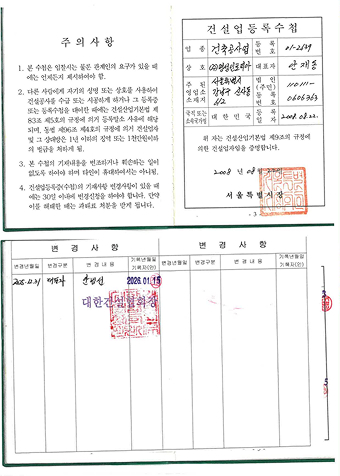 주 의 사 항
1. 본 수첩은 입찰시는 물론 관계인의 요구가 있을 때
에는 언제든지 제시하여야 함.
2. 다른 사람에게 자기의 성명 또는 상호를 사용하여
건설공사를 수급 또는 시공하게 하거나 그 등록증
또는 등록수첩을 대여한 때에는 건설산업기본법 제
83조 제5호의 규정에 의거 등록말소 사유에 해당
되며, 동법 제96조 제4호의 규정에 의거 건설업자
및 그 상대방은 1년 이하의 징역 또는 1천만원이하
의 벌금을 처하게 됨.
3. 본 수첩의 기재내용을 변조하거나 훼손하는 일이
없도록 하여야 하며 타인이 휴대하여서는 아니됨.
4. 건설업등록(수첩)의 기재사항 변경사항이 있을 때
에는 30일 이내에 변경신청을 하여야 한다. 만약
이를 해태한 때는 과태료 처분을 받게 됩니다.
건설업등록수첩
업 종 건축공사업 등 록 번 호 01-2639
상 호 대표자
주 된 영업소 소재지 서울특별시 강남구 법 인 (주민) 등 록 번 호 110111-
0606363
국적 또는 소속국가명 대 한 민 국 등 록 일 자 2008.08.22.
위 자는 건설산업기본법 제9조의 규정에
의한 건설업자임을 증명합니다.
2008 년 08 월
서 울 특 별 시 장
- 3 -
변 경 사 항
변 경 사 항
변경년월일 변경구분 변 경 내 용 기록년월일 기록자(인) 변경년월일 변경구분 변 경 내 용 기록년월일 기록자(인)
대표자 2026. 01. 15
대한건설협회장